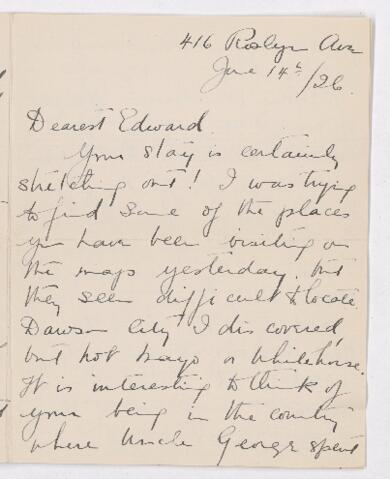 416 Roslyn Ave
June 14th/26.
Dearest Edward.
Your stay is certainly
stretching out! I was trying
to find some of the places
you have been visiting on
the maps yesterday. but
they seem difficult to locate
Dawson City I discovered,
but not Mayo or Whitehorse.
It is interesting to think of
your being in the country
where Uncle George spent